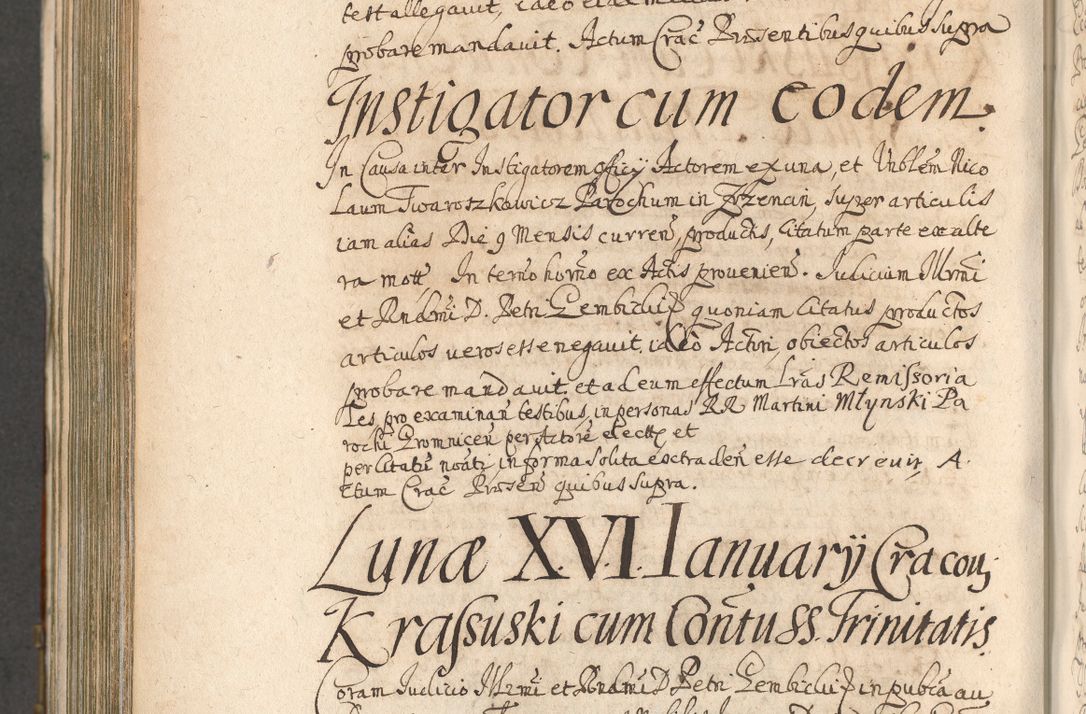 test allegavit, ideo
probare mandavit. Actum Crac̄ Præsentibus quibus supra
Instigator cum eodem.
In Causa inter Instigatorem officÿ Actorem ex una, et Vnblem̄ Nico
laum Twaroszkowicz Parochum in Brzencin, super articulis
iam alias Die 9 Mensis curren̄ productis, Citatum parte ex alte
ra mott̄. In termo horno ex Actis provenien̄. Iudicium Illrmi
et Rndmi D. Petri Gembicki quoniam Citatus productos
articulos veros esse negavit, ideo Actori, obiectos articulos
probare mandavit. et ad eum effectum Lras Remissoria
les pro examinan̄ testibus, in personas RR Martini Młynski Pa
rochi Gromnicen̄ per Actorē elect et
per Citatū noāti in forma solita extraden̄ esse decrevit. A
ctum Crac̄ Præsen̄ quibus supra.
Lunæ X.VI. Ianuarÿ Cracov;
Krassuski cum Conn̄tu SS. Trinitatis
Coram Iudicio Illrmi et Rndmi D Petri Gembicki in publca au